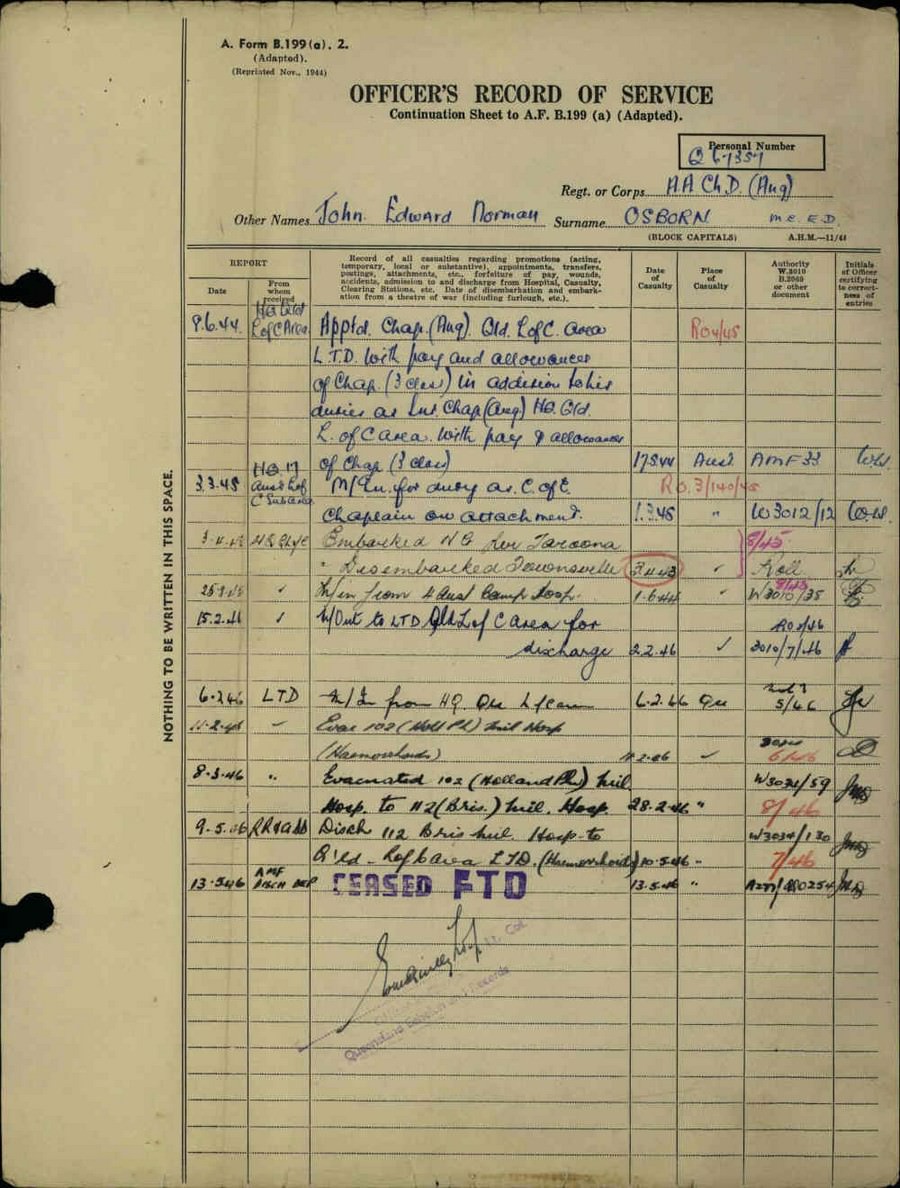 A. Form B.199 (a). 2.
(Adapted).
(Reprinted Nov., 1944)
OFFICER'S RECORD OF SERVICE
Continuation Sheet to A.F. B.199 (a) (Adapted).
Personal Number
Q 67357
Regt. or Corps A.A Ch.D. (Ang)
Other Names John Edward Norman Surname OSBORN M.E. E.D
(BLOCK CAPITALS) A.H.M.—11/44
REPORT
Date
From whom received
Record of all casualties regarding promotions (acting, temporary, local or substantive), appointments, transfers, postings, attachments, etc., forfeiture of pay, wounds, accidents, admission to and discharge from Hospital, Casualty, Clearing Stations, etc. Date of disembarkation and embarkation from a theatre of war (including furlough, etc.).
Date of Casualty
Place of Casualty
Authority W.3010 B.2069 or other document
Initials of Officer certifying to correctness of entries
HQ Qld
9.6.44. L of C Area Apptd. Chap. (Ang) Qld. L of C. area RO 4/45
L.T.D. With pay and allowances
of Chap. (3 class) in addition to his
duties as Chap (Ang) HQ. Qld.
L. of C area. With pay & allowances
of Chap (3 class) 17.5.44 Aust AMF 33
HQ 17
3.3.45 Aust L of C Sub area M/In. for duty as C. of E. RO.3/140/45
Chaplain on attachment. 1.3.45 " W3012/12
Embarked NG per Taroona 8/45
" Disembarked Townsville 3.11.43 ✓ Roll
M/in from 4 Aust Camp Hosp. 1.6.44 " W3010/35
15.2.46 ✓ M/Out to LTD Qld L of C area for
discharge 2.2.46 ✓ 3010/7/46
6.2.46 LTD M/In from HQ. L of C area 6.2.46 5/46
11.2.46 Evac 102 (Holl Pk) Mil Hosp
(Haemorrhoids) 11.2.46 ✓ 6/46
8.3.46 " Evacuated 102 (Holland Pk) Mil
Hosp. to 112 (Bris.) Mil. Hosp. 28.2.46 " W3034/59 8/46
9.5.46 Disch 112 Bris Mil. Hosp. to W3034/130
Q'ld - L of C area LTD. (Haemorrhoids) 10.5.46 " 7/46
13.5.46 AMF DISCH DEP CEASED FTD 13.5.46 "
Lt. Col.
Queensland Echelon and Records
NOTHING TO BE WRITTEN IN THIS SPACE.